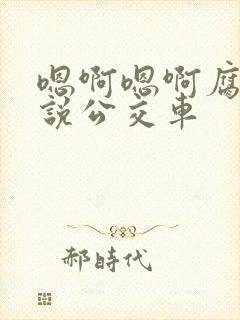 嗯啊嗯啊腐
說公交車
郝時代